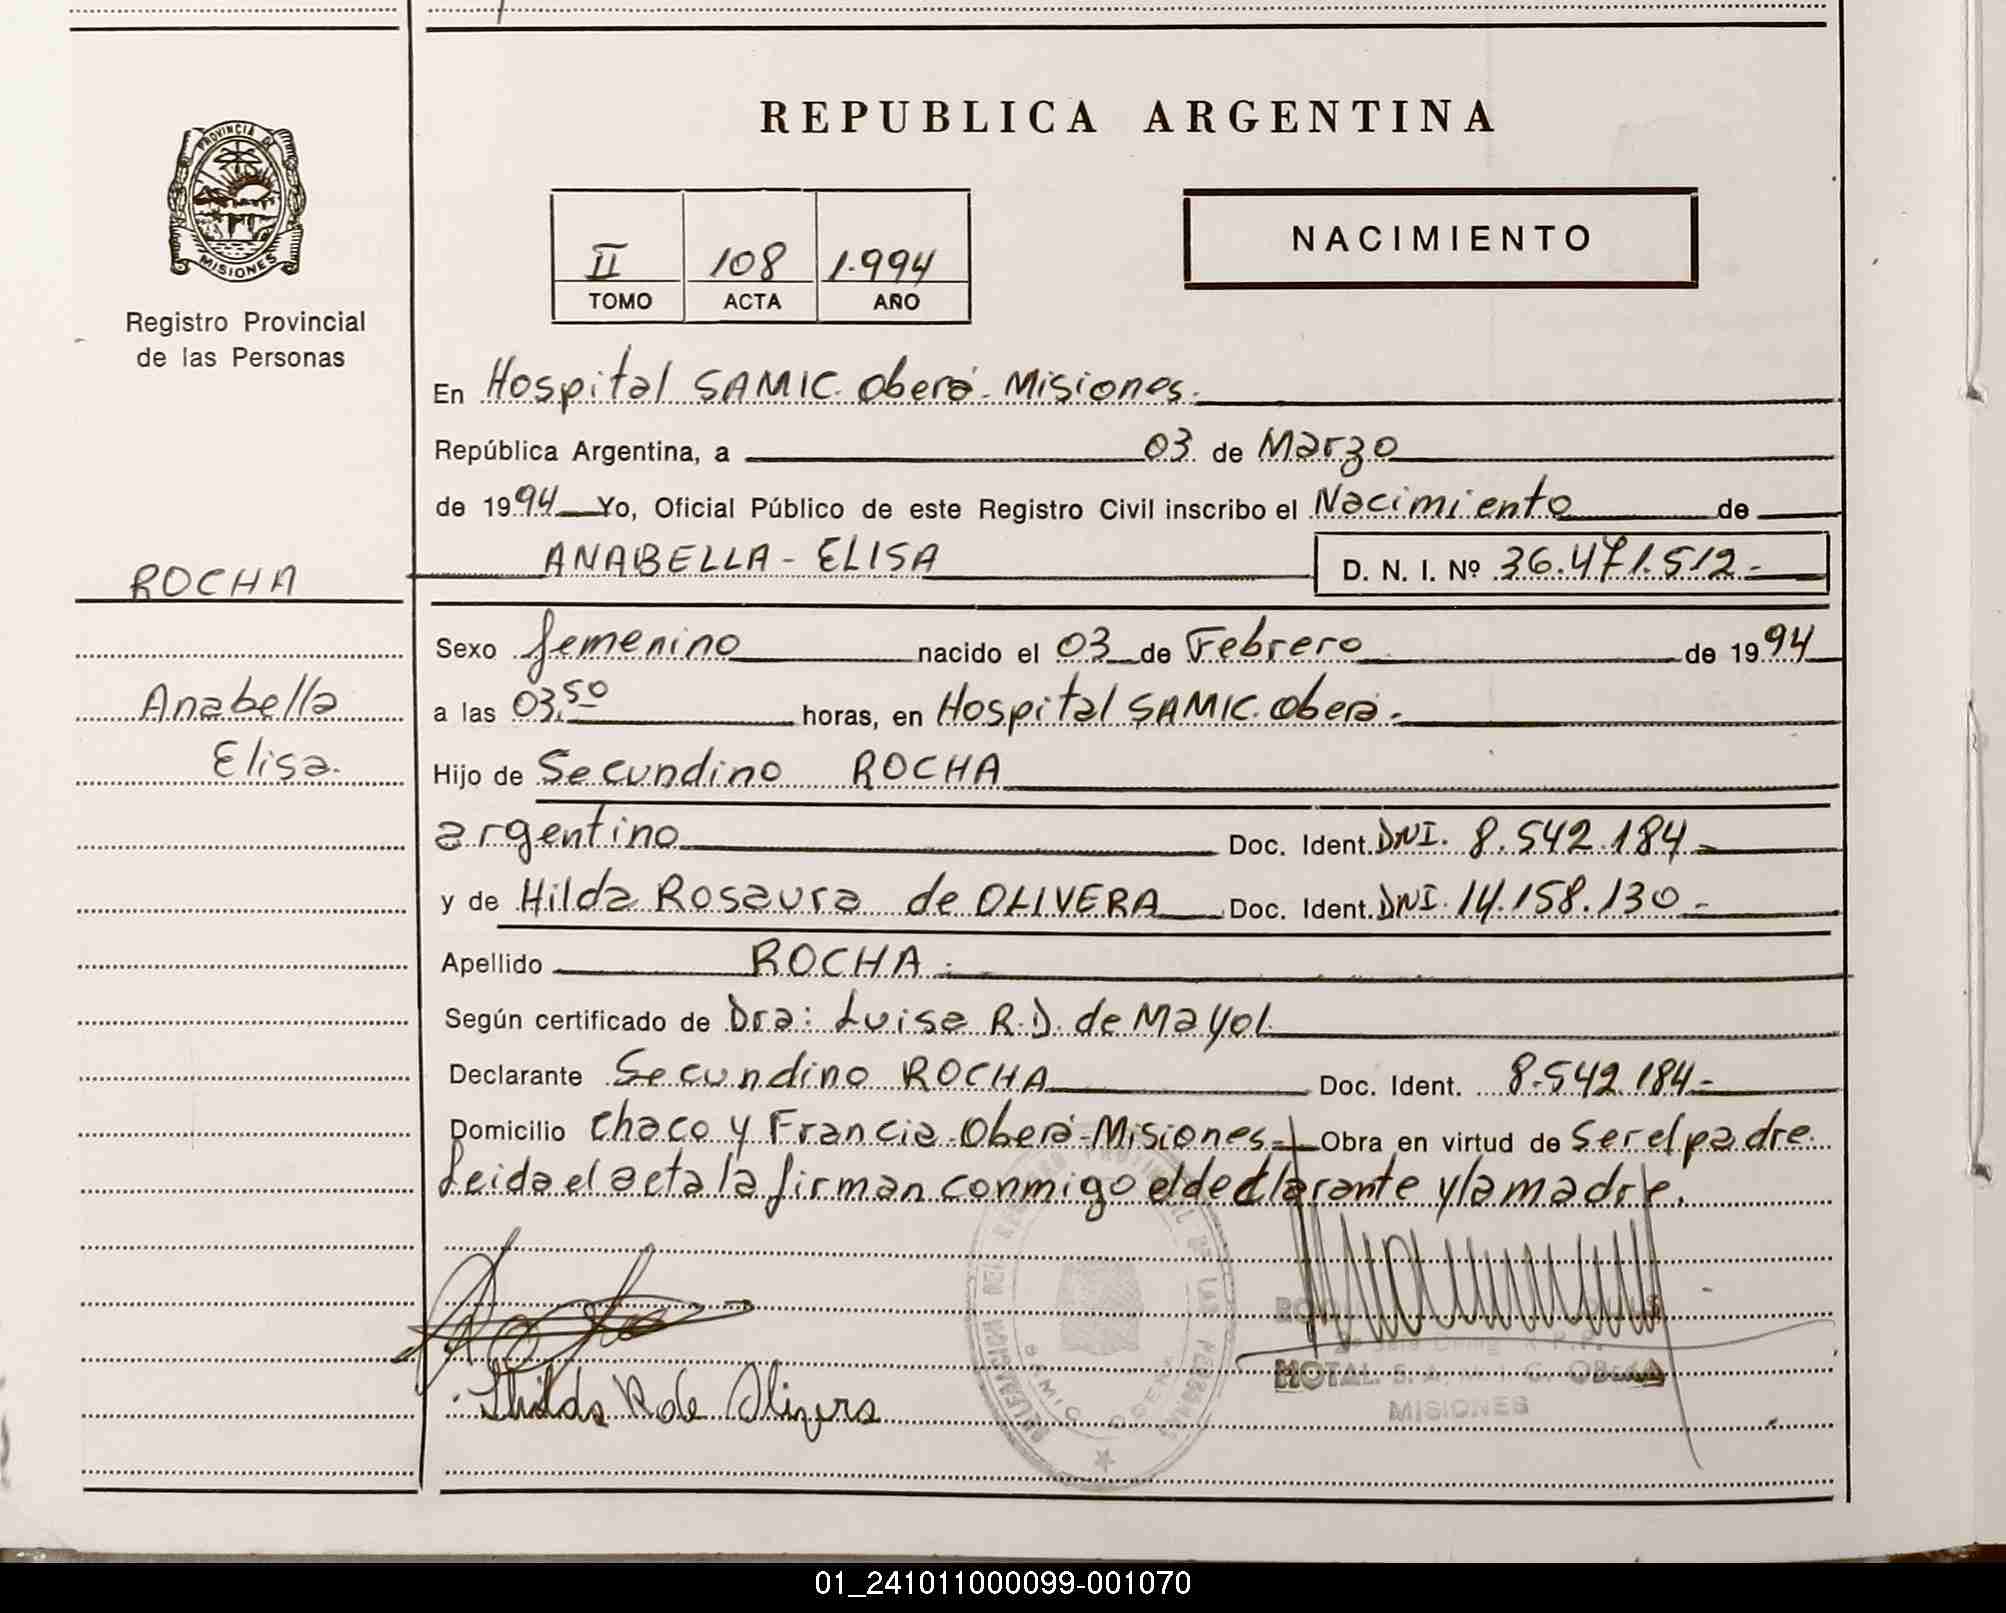 REPUBLICA ARGENTINA
PROVINCIA DE
MISIONES
Registro Provincial
de las Personas
II 108 1.994
TOMO ACTA AÑO
NACIMIENTO
En Hospital SAMIC. Oberá - Misiones.
República Argentina, a 03 de Marzo
de 1994 Yo, Oficial Público de este Registro Civil inscribo el Nacimiento de
ANABELLA - ELISA D. N. I. Nº 36.471.512.-
ROCHA
Anabella
Elisa.
Sexo femenino nacido el 03 de Febrero de 1994
a las 03,50 horas, en Hospital SAMIC. Oberá.
Hijo de Secundino ROCHA
argentino Doc. Ident. DNI. 8.542.184 -
y de Hilda Rosaura de OLIVERA Doc. Ident. DNI. 14.158.130 -
Apellido ROCHA.
Según certificado de Dra: Luisa R.D. de Mayol
Declarante Secundino ROCHA Doc. Ident. 8.542.184.-
Domicilio Chaco y Francia - Oberá - Misiones - Obra en virtud de ser el padre.
Leida el acta la firman conmigo el declarante y la madre.
Hilda R de Olivera
MISIONES
01_241011000099-001070